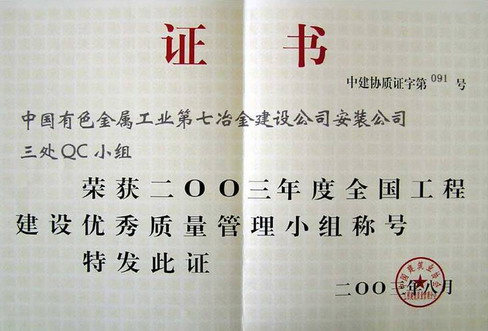 证书
中建协质证字第091号
中国有色金属工业第七冶金建设公司安装公司
三处QC小组
荣获二〇〇三年度全国工程
建设优秀质量管理小组称号
特发此证
二〇〇三年八月
中国建筑业协会